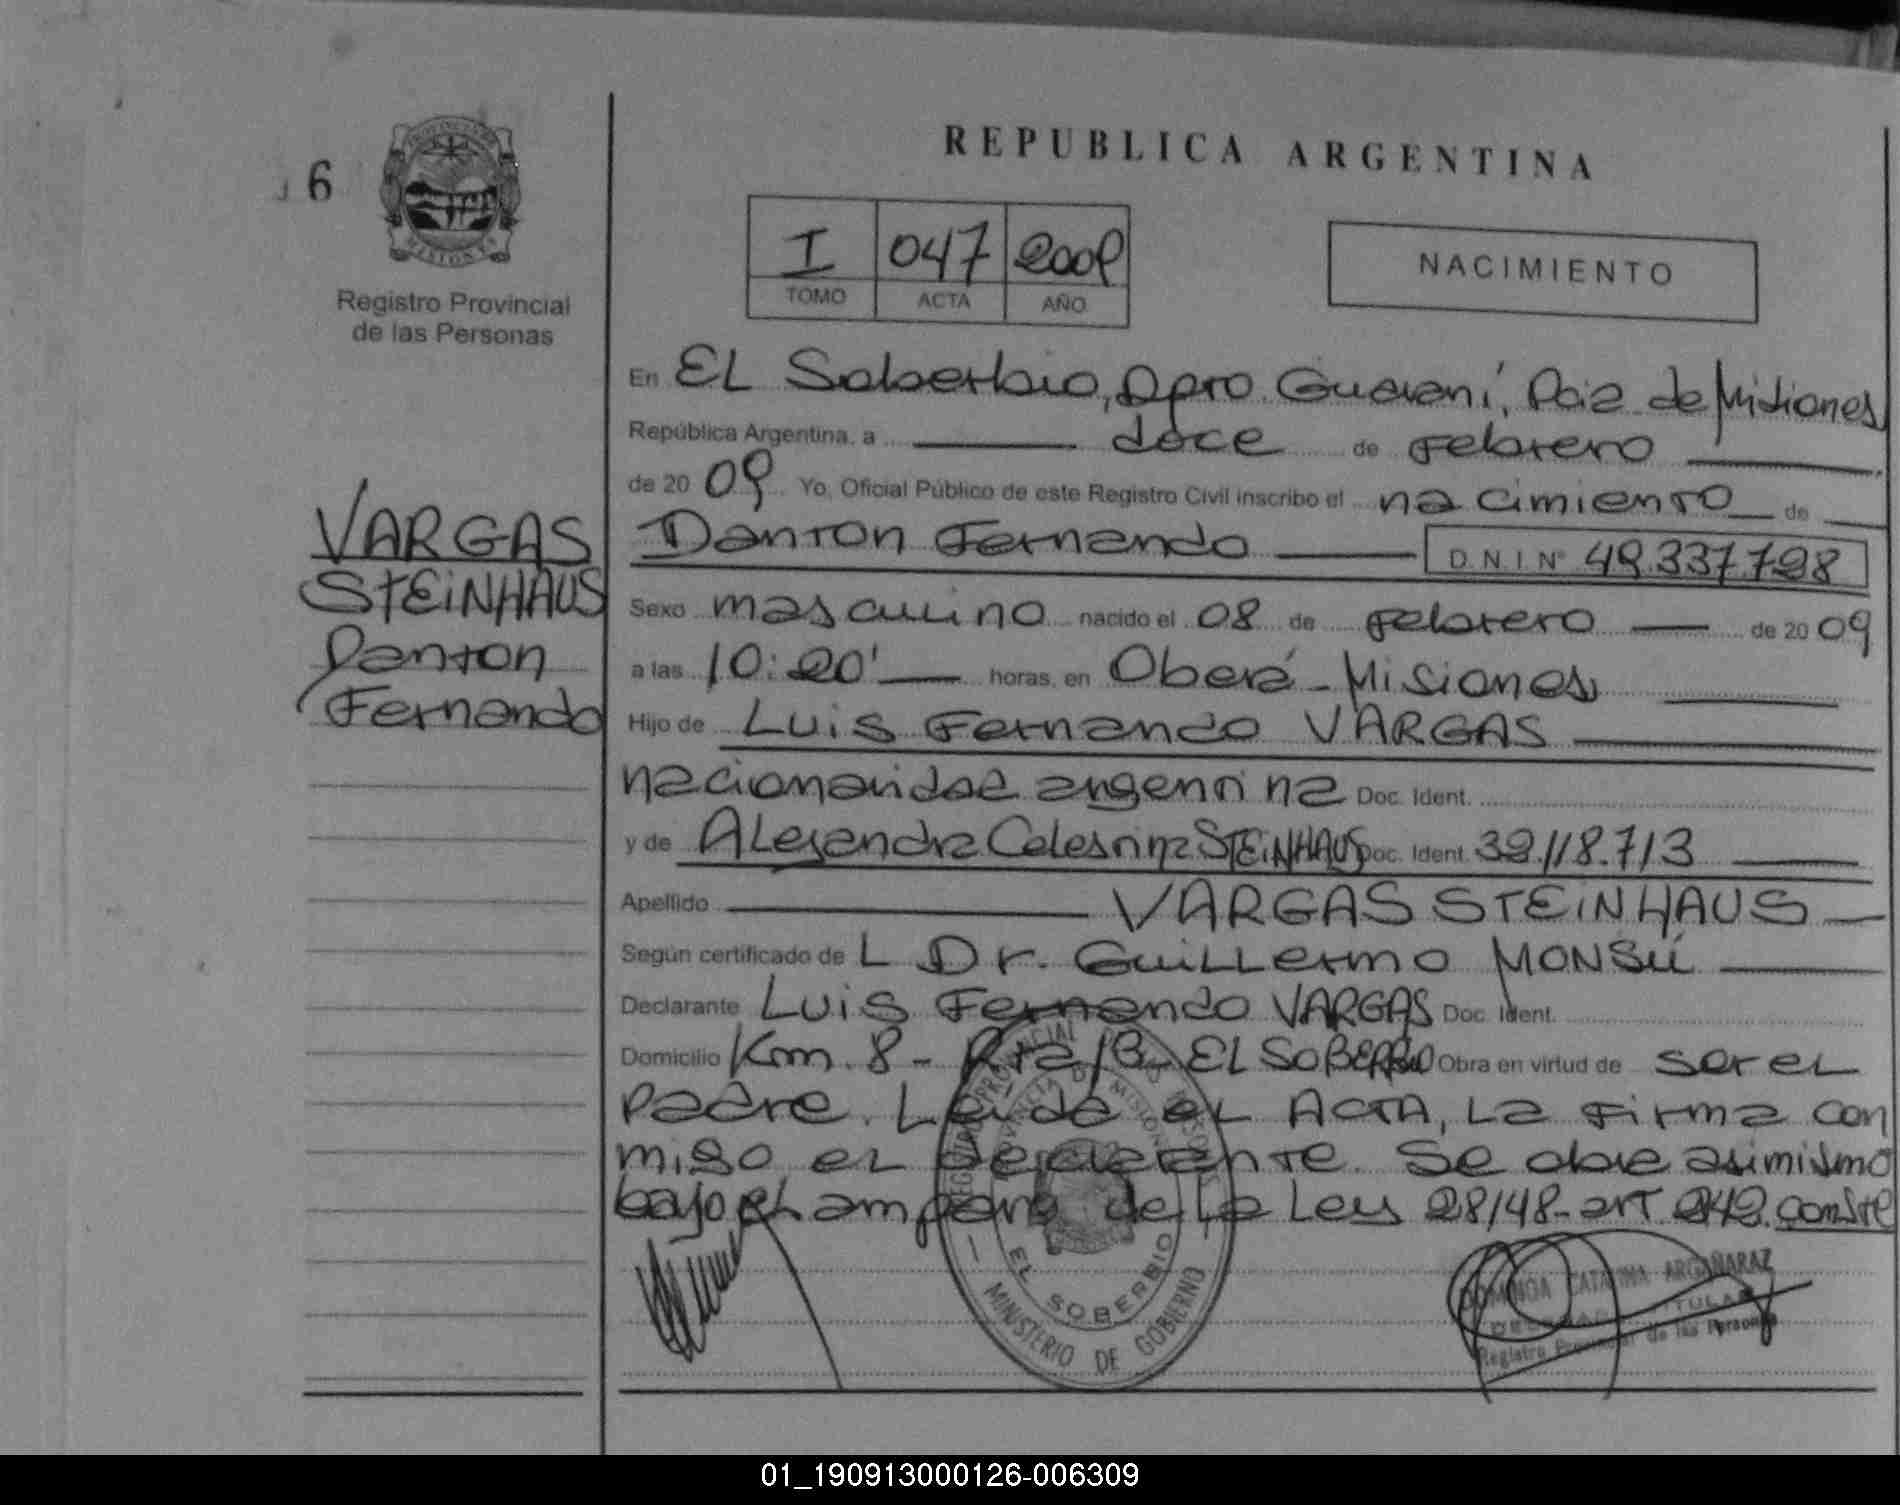 6
Registro Provincial
de las Personas
VARGAS
STEINHAUS
Danton
Fernando
REPUBLICA ARGENTINA
I 047 2009
TOMO ACTA AÑO
NACIMIENTO
En EL Soberbio, Dpto Guaraní, Pcia de Misiones
República Argentina, a doce de Febrero
de 20 09 Yo, Oficial Público de este Registro Civil inscribo el nacimiento de
Danton Fernando D.N.I Nº 49.337.798
Sexo masculino nacido el 08 de Febrero de 20 09
a las 10:20' horas, en Oberá - Misiones
Hijo de Luis Fernando VARGAS
nacionalidad argentina Doc. Ident.
y de ALejandra Celestina STEINHAUS Doc. Ident. 39.118.713
Apellido VARGAS STEINHAUS
Según certificado de L Dr. GuiLLermo
Declarante Luis Fernando VARGAS Doc. Ident.
Domicilio Km. 8 - EL SOBERBIO Obra en virtud de ser eL
Padre. Leída eL ACTA, La Firma con
migo eL declarante. Se obre asimismo
bajo eL amparo de La Ley art 242. conste
REGISTRO PROVINCIAL DE LAS PERSONAS
PROVINCIA DE MISIONES
EL SOBERBIO
MINISTERIO DE GOBIERNO
CATALINA ARGAÑARAZ
TITULAR
Registro Provincial de las Personas
01_190913000126-006309